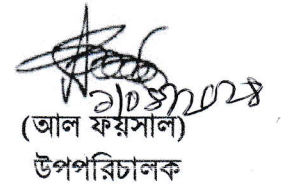 (আল ফয়সাল)
উপপরিচালক